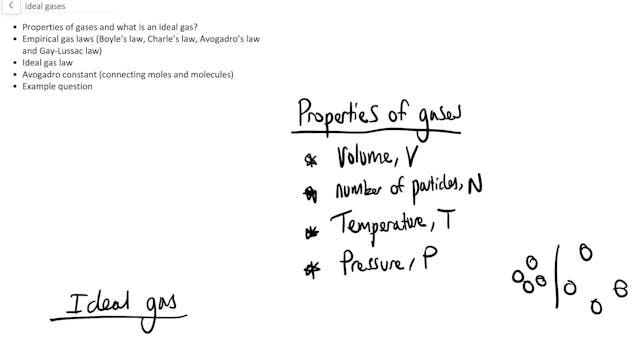 Ideal gases
Properties of gases and what is an ideal gas?
Empirical gas laws (Boyle's law, Charle's law, Avogadro's law
and Gay-Lussac law)
Ideal gas law
Avogadro constant (connecting moles and molecules)
Example question
Properties of gases
* Volume, V
* number of particles, N
* Temperature, T
* Pressure, P
Ideal gas